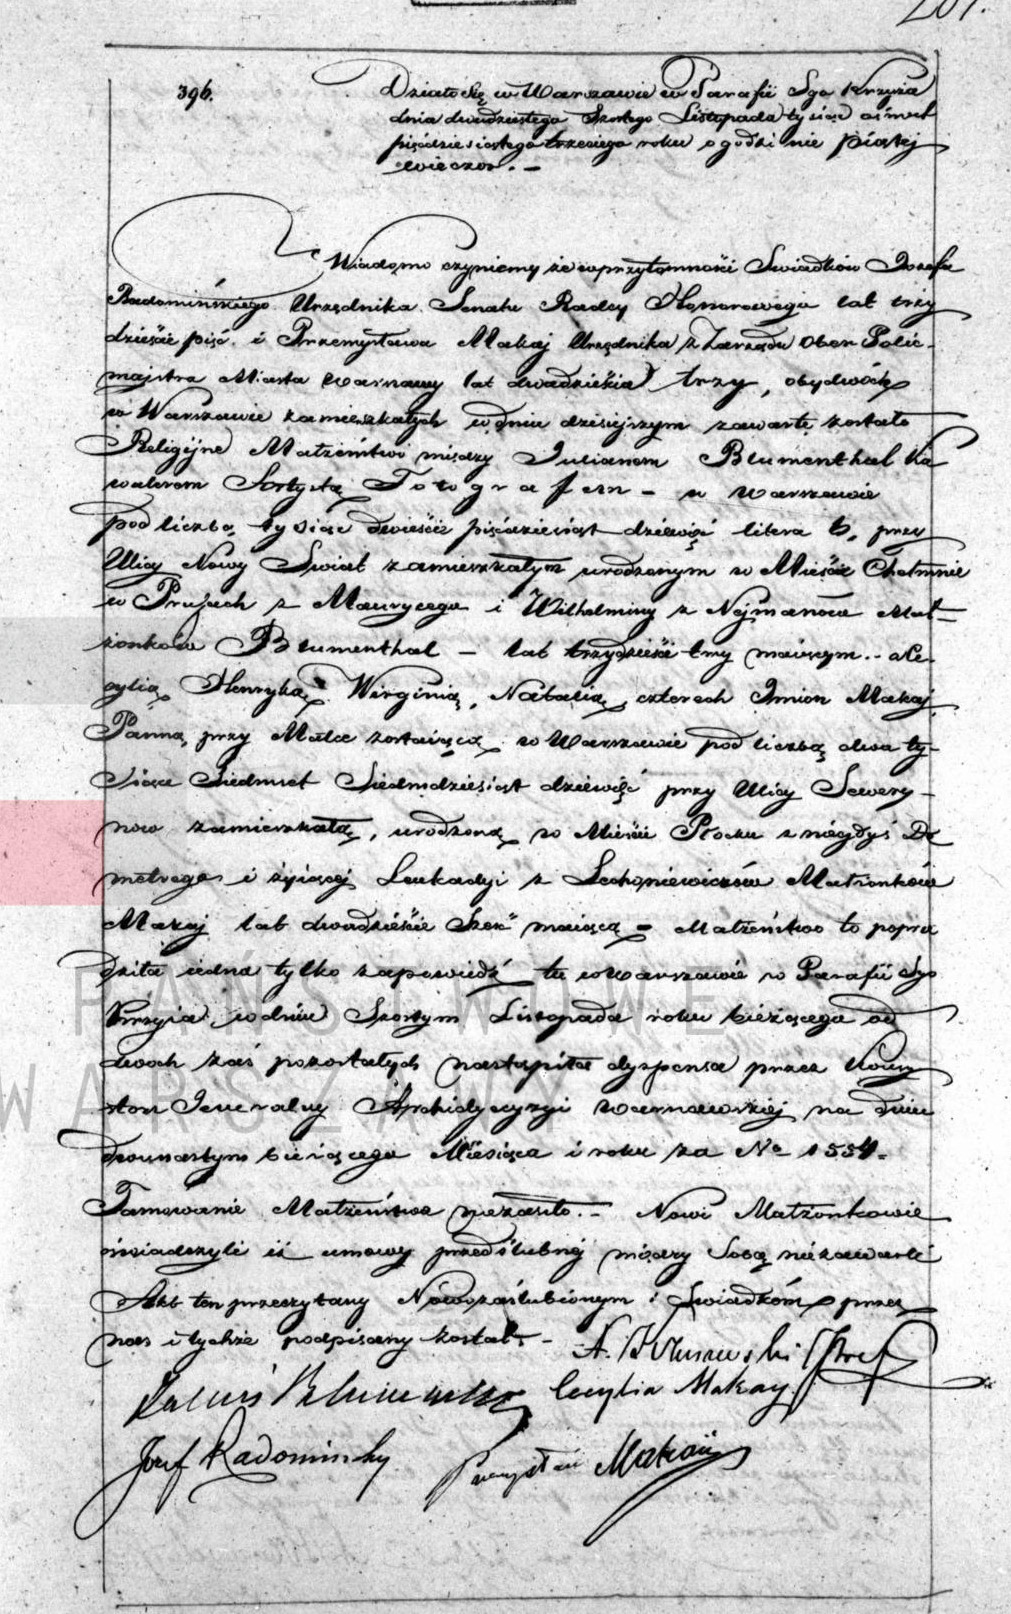 201.
396.
Działo się w Warszawie w Parafii Sgo Krzyża
dnia dwudziestego Szóstego Listopada tysiąc ośmset
pięćdziesiątego trzeciego roku o godzinie piątej
wieczór. –
Wiadomo czyniemy że w przytomności Swiadków Józefa
Radomińskiego Urzędnika Senatu Radcy Honorowego lat trzy
dzieście pięć i Przemysława Makaj Urzędnika z Zarządu Ober Polic-
majstra Miasta Warszawy lat dwadzieścia trzy, obydwóch
w Warszawie zamieszkałych w dniu dzisiejszym zawarte zostało
Religijne Małżeństwo między Julianem Blumenthal Ka
walerem Artystą Fotografem – w Warszawie
pod liczbą tysiąc dwieście pięćdziesiąt dziewięć litera b, przy
Ulicy Nowy Swiat zamieszkałym urodzonym w Mieście Chełmnie
w Prusach z Maurycego i Wilhelminy z Nejmanów Mał-
żonków Blumenthal – lat trzydzieści trzy mającym. – Ce-
cylią, Henryką, Wirginią, Natalią, czterech Imion Makaj
Panną, przy Matce zostającą w Warszawie pod liczbą dwa ty-
siące Siedmset Siedmdziesiąt dziewięć przy Ulicy Sewery-
now zamieszkałą, urodzoną w Mieście Płocku z niegdyś De
metrego i żyjącej Leukadyi z Małżonków
Makaj lat dwadzieście Sześć mającą – Małżeństwo to poprze
dziła jedna tylko zapowiedź tu w Warszawie w Parafii Sgo
Krzyża w dniu Szóstym Listopada roku bieżącego od
dwóch zaś pozostałych nastąpiła dyspensa przez Konsy
storz Jeneralny Archidyecezyi Warszawskiej na dniu
dwunastym bieżącego Miesiąca i roku za No 1554.
Tamowanie Małżeństwa niezaszło. – Nowi Małżonkowie
oświadczyli iż umowy przedślubnej między Sobą niezawarli
Akt ten przeczytany Nowozaślubionym i Swiadkom przez
nas i tychże podpisany został. –
Cecylia Makay
Józef Radominsky
Przemysław Makaÿ
PAŃSTWOWE
WARSZAWY